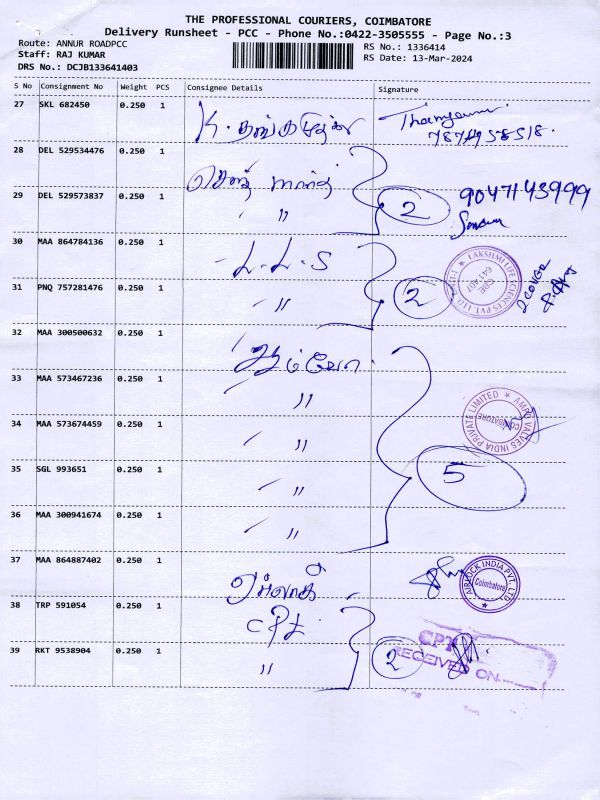 THE PROFESSIONAL COURIERS, COIMBATORE
Delivery Runsheet - PCC - Phone No.:0422-3505555 - Page No.:3
Route: ANNUR ROADPCC
RS No.: 1336414
Staff: RAJ KUMAR
RS Date: 13-Mar-2024
DRS No.: DCJB133641403
S No Consignment No Weight PCS Consignee Details Signature
27 SKL 682450 0.250 1
28 DEL 529534476 0.250 1
29 DEL 529573837 0.250 1 " 2 9047143999
30 MAA 864784136 0.250 1 L.L.S
LAKSHMI LIFE SCIENCES PVT. LTD
CBE
641 407
2 COVER
31 PNQ 757281476 0.250 1 " 2
32 MAA 300500632 0.250 1
33 MAA 573467236 0.250 1 "
34 MAA 573674459 0.250 1 "
AMPO VALVES INDIA PRIVATE LIMITED
COIMBATORE
35 SGL 993651 0.250 1 " 5
36 MAA 300941674 0.250 1 "
37 MAA 864887402 0.250 1
AIRLOCK INDIA PVT. LTD
Coimbatore
38 TRP 591054 0.250 1
39 RKT 9538904 0.250 1 " 2
CPT
RECEIVED ON